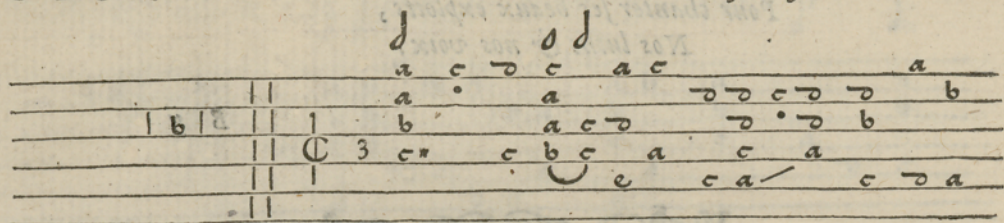 a c d c a c a
a a d d c d d b
b b a c d d d b
3 c* c b c a c a
e c a c d a